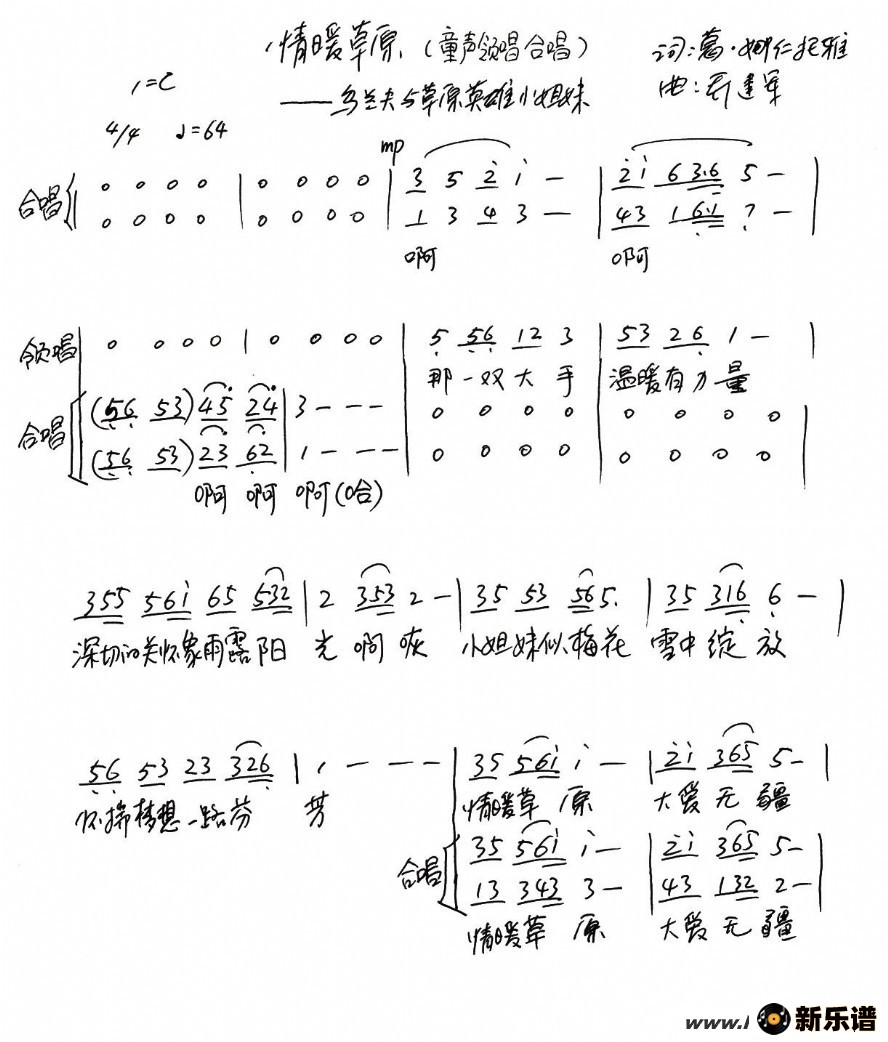 情暖草原 (童声领唱合唱)
——乌兰夫与草原英雄小姐妹
词:葛·娜仁托雅
曲: 建军
1=C
4/4 ♩=64
mp
合唱 0 0 0 0 | 0 0 0 0 | 3 5 2̇ 1̇ — | 2̇1̇ 6 3.6 5 — |
0 0 0 0 | 0 0 0 0 | 1 3 4 3 — | 43 1 6.1 7 — |
啊 啊
领唱 0 0 0 0 | 0 0 0 0 | 5 56 12 3 | 53 26 1 — |
那一双大手 温暖有力量
合唱 (56 53) 45 24 | 3 — — — | 0 0 0 0 | 0 0 0 0 |
(56 53) 23 62 | 1 — — — | 0 0 0 0 | 0 0 0 0 |
啊 啊 啊(哈)
355 561̇ 65 532 | 2 353 2 — | 35 53 565. | 35 316 6 — |
深切的关怀象雨露阳 光 啊 咴 小姐妹似梅花 雪中绽 放
56 53 23 326 | 1 — — — | 35 561̇ 1̇ — | 2̇1̇ 365 5 — |
怀揣梦想一路芬 芳 情暖草 原 大爱无 疆
合唱 35 561̇ 1̇ — | 2̇1̇ 365 5 — |
13 343 3 — | 43 132 2 — |
情暖草 原 大爱无 疆
www. 新乐谱